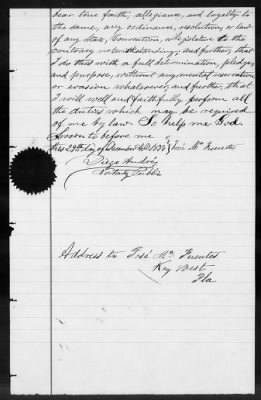 bear true faith, allegiance, and loyalty to
the same, any ordinance, resolution, or law
of any State, Convention, or Legislature to the
contrary notwithstanding; and further, that
I do this with a full determination, pledge,
and purpose, without any mental reservation
or evasion whatsoever; and further, that
I will well and faithfully perform all
the duties which may be required
of me by law. So help me God.
Sworn to before me
this 29th day of December José Ma Fuentes
Diego André
Notary Public
Address to José Ma Fuentes
Key West
Fla